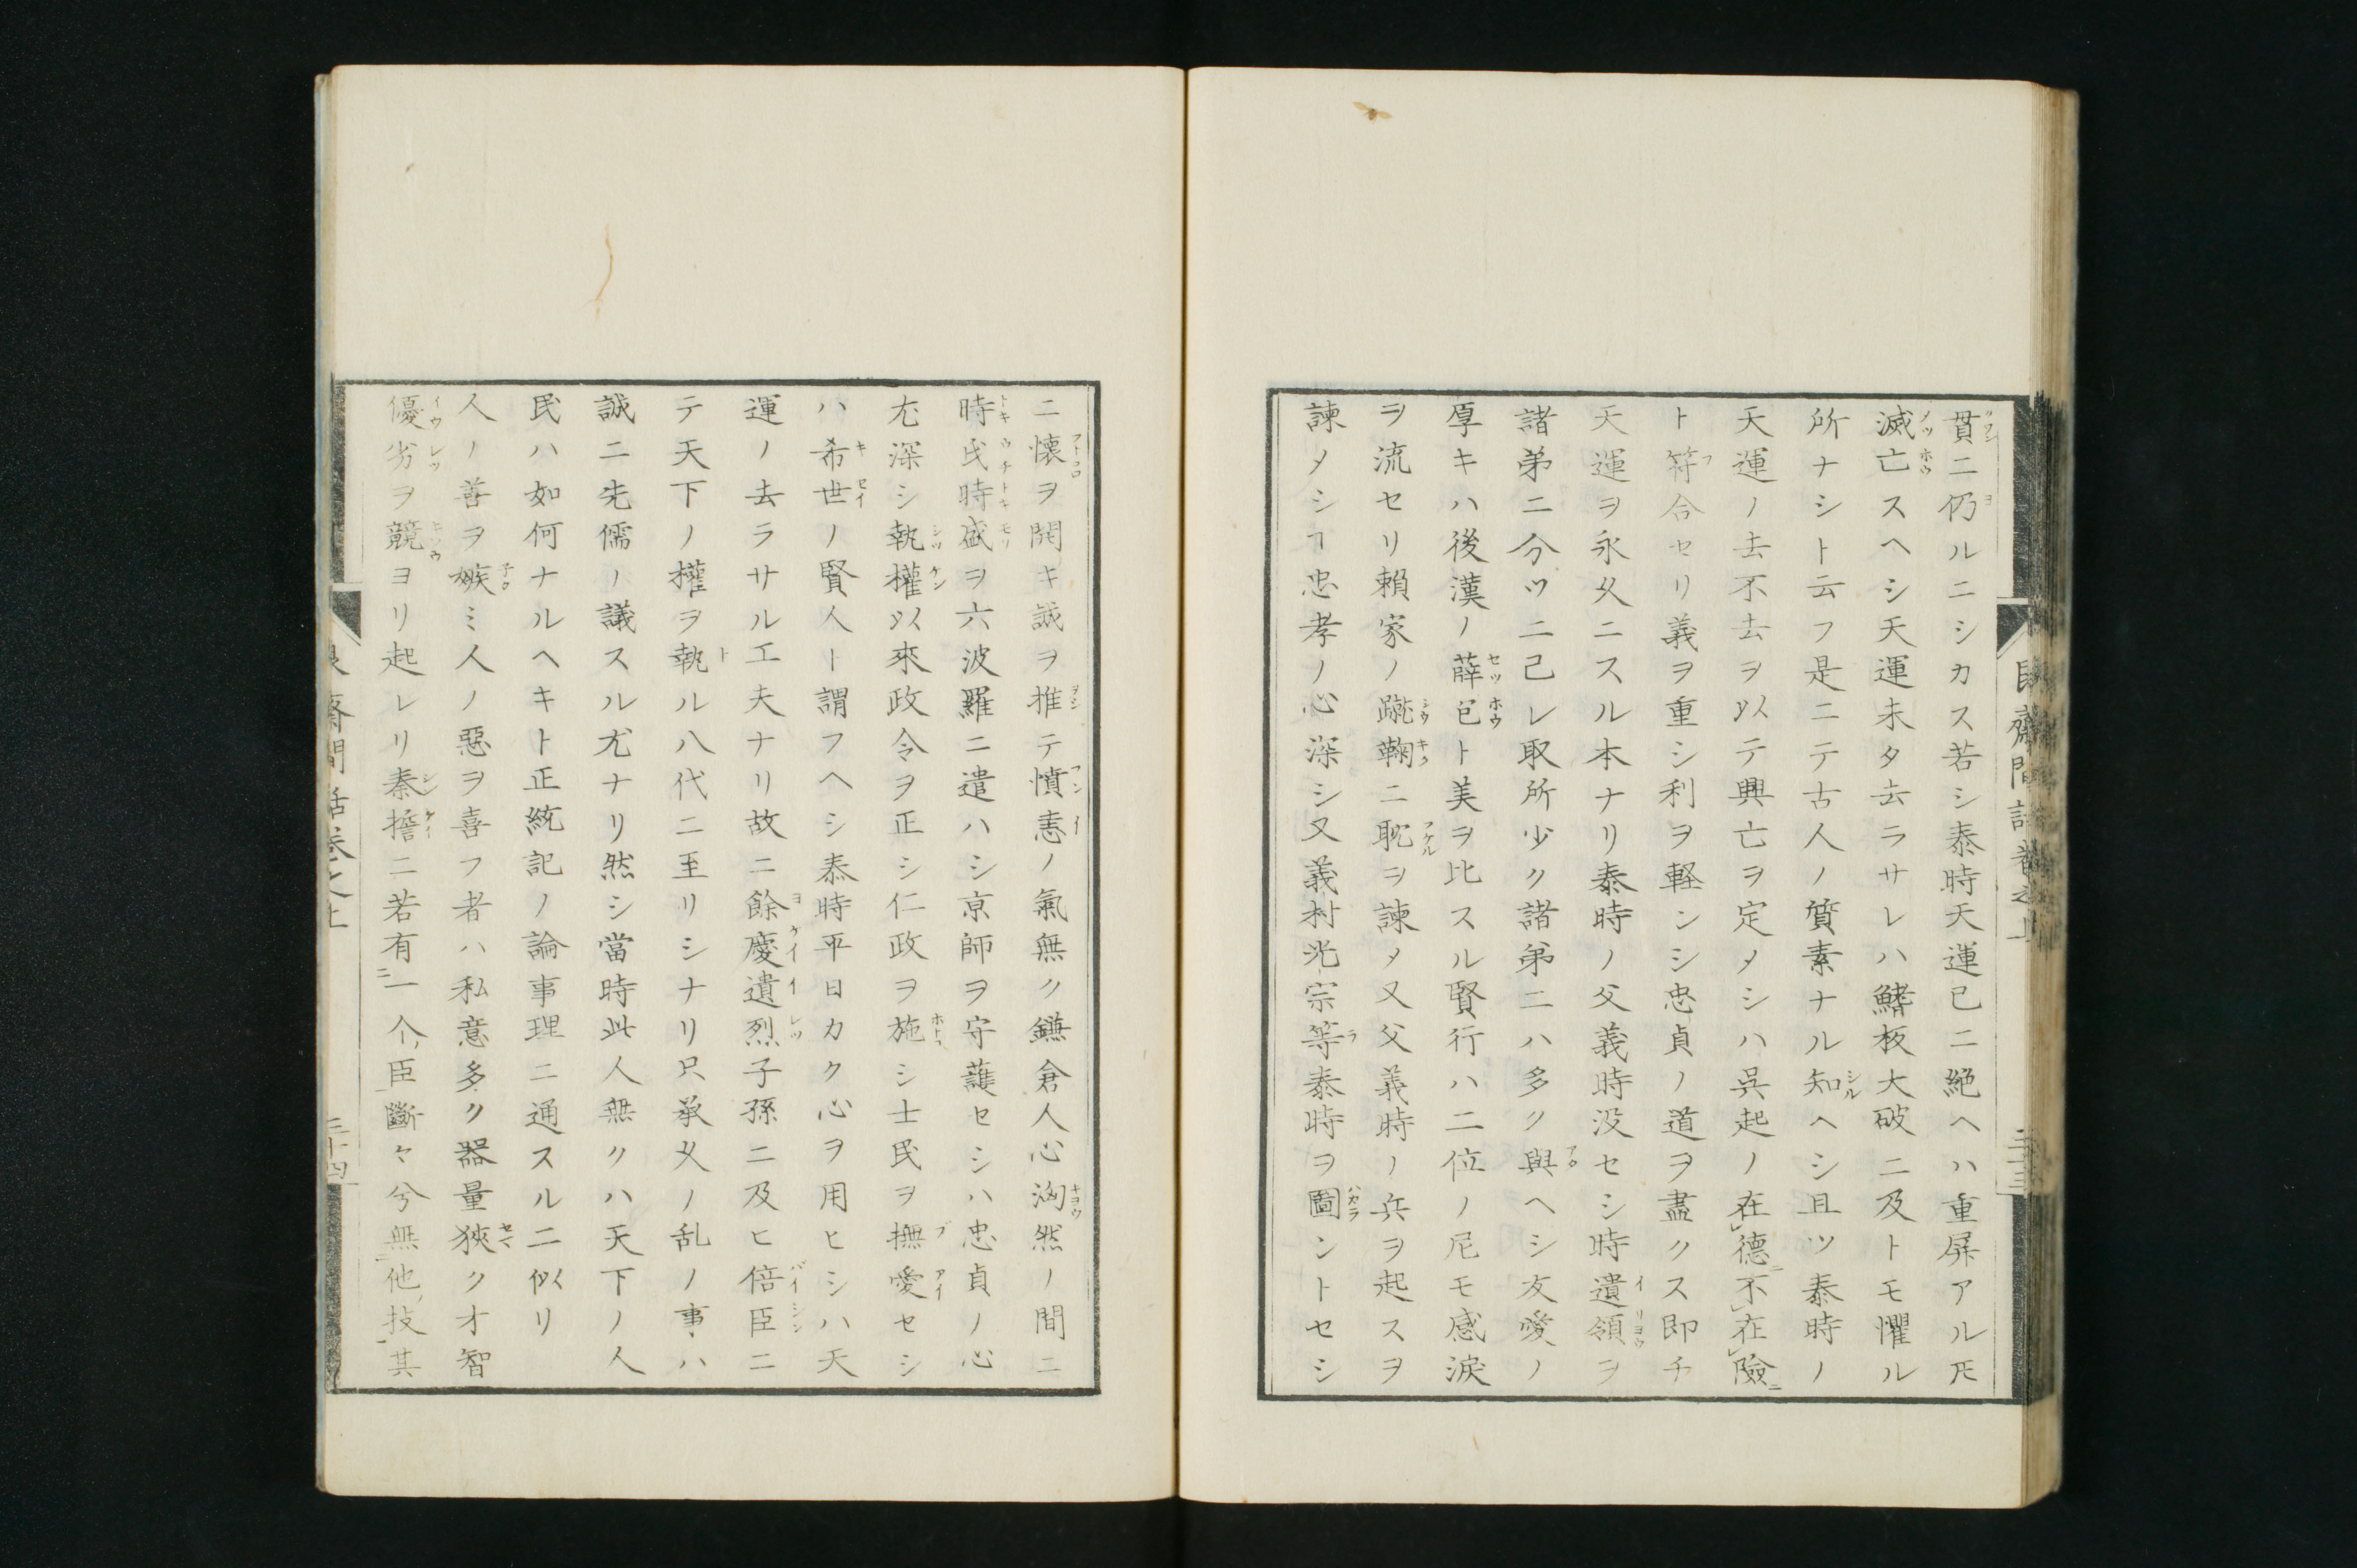 貫ニ仍ルニシカス若シ泰時天運已ニ絶ヘハ重屏アルㇳモ
滅亡スヘシ天運未タ去ラサレハ鰭板大破ニ及トモ懼ル
所ナシト云フ是ニテ古人ノ質素ナル知ヘシ且ツ泰時ノ
天運ノ去不去ヲ以テ興亡ヲ定メシハ呉起ノ在德不在險
ト符合セリ義ヲ重シ利ヲ軽ンシ忠貞ノ道ヲ盡クス即チ
天運ヲ永久ニスル本ナリ泰時ノ父義時没セシ時遺領ヲ
諸弟ニ分ツニ己レ取所少ク諸弟ニハ多ク與ヘシ友愛ノ
厚キハ後漢ノ薛包ト美ヲ比スル賢行ハ二位ノ尼モ感淚
ヲ流セリ賴家ノ蹴鞠ニ耽ヲ諫メ又父義時ノ兵ヲ起スヲ
諫メシヿ忠孝ノ心深シ又義村光宗等泰時ヲ圖ントセシ
ニ懷ヲ開キ誠ヲ推テ憤恚ノ氣無ク鎌倉人心洶然ノ間ニ
時氏時盛ヲ六波羅ニ遣ハシ京師ヲ守護セシハ忠貞ノ心
尤深シ執權以來政令ヲ正シ仁政ヲ施シ士民ヲ撫愛セシ
ハ希世ノ賢人ト謂フヘシ泰時平日カク心ヲ用ヒシハ天
運ノ去ラサル工夫ナリ故ニ餘慶遺烈子孫ニ及ヒ倍臣ニ
テ天下ノ權ヲ執ル八代ニ至リシナリ只承久ノ乱ノ事ハ
誠ニ先儒ノ議スル尤ナリ然シ當時此人無クハ天下ノ人
民ハ如何ナルヘキト正統記ノ論事理ニ通スルニ似リ
人ノ善ヲ嫉ミ人ノ惡ヲ喜フ者ハ私意多ク器量狹ク才智
優劣ヲ競ヨリ起レリ秦擔ニ若有一个臣斷々兮無他技其